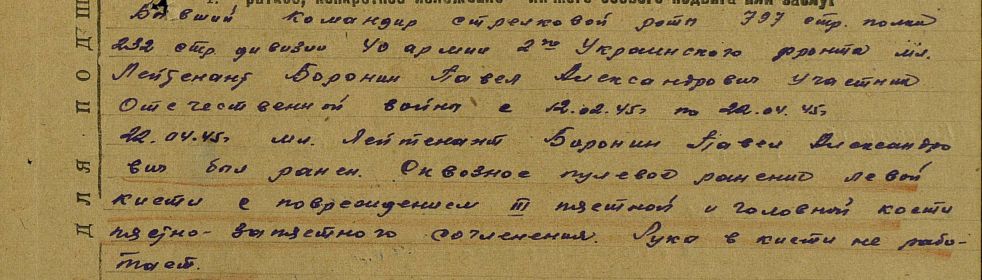 I. Краткое, конкретное изложение личного боевого подвига или заслуг
Бывший командир стрелковой роты 797 стр. полка
232 стр. дивизии 40 армии 2го Украинского фронта мл.
Лейтенант Боронин Павел Александрович участник
Отечественной войны с 12.02.45г по 22.04.45г
22.04.45г мл. Лейтенант Боронин Павел Александро
вич был ранен. Сквозное пулевое ранение левой
кисти с повреждением III пястной и головной кости
пястно-запястного сочленения. Рука в кисти не рабо-
тает.
ДЛЯ ПОДШ